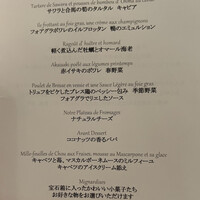 Tartare de Saverin et pousses de bambou d'Oshio au caviar
サワラと合馬の筍のタルタル キャビア
Île flottante au foie gras, une crème aux champignons
フォアグラポワレのイルフロッタン 鴨のエミュルション
Ragoût d'huître et homard
軽く煮込んだ牡蠣とオマール海老
Akayashi poêlé aux légumes printemps
赤イサキのポワレ 春野菜
Poulet de Bresse en vessie et une sauce liée au foie gras, légumes
トリュフをピケしたブレス鶏のベッシー包み 季節野菜
フォアグラでリエしたソース
Notre Plateau de Fromages
ナチュラルチーズ
Avant Dessert
ココナッツの香るババ
Mille-feuilles de Chou aux Fraises, mousse au Mascarpone et sa glace
キャベツと苺、マスカルポーネムースのミルフイーユ
キャベツのアイスクリーム
Mignardises
宝石箱に入ったかわいい小菓子たち
お好きな物をお選びいただけます